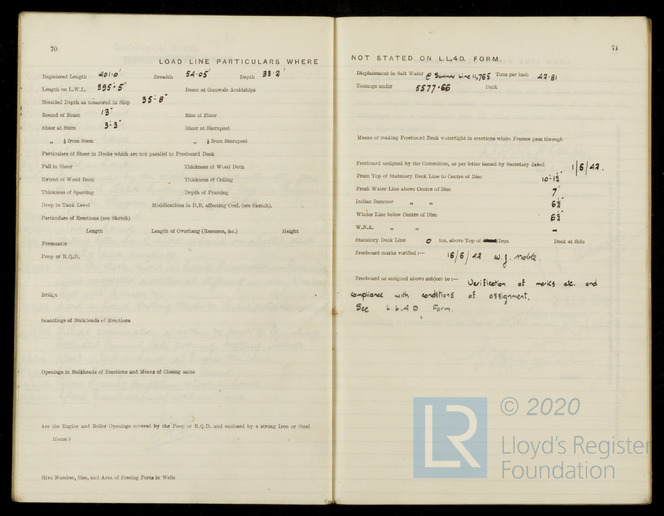 70
LOAD LINE PARTICULARS WHERE
Registered Length 401·0' Breadth 54·05' Depth 33·2'
Length on L.W.L. 395'·5" Beam at Gunwale Amidships
Moulded Depth as measured in Ship 35'·8"
Round of Beam 13" Rise of Floor
Sheer at Stem 3'·3" Sheer at Sternpost
" ⅛ from Stem " ⅛ from Sternpost
Particulars of Sheer in Decks which are not parallel to Freeboard Deck
Fall in Sheer Thickness of Wood Deck
Extent of Wood Deck Thickness of Ceiling
Thickness of Sparring Depth of Framing
Drop in Tank Level Modifications in D.B. affecting Coef. (see Sketch).
Particulars of Erections (see Sketch)
Length Length of Overhang (Recesses, &c.) Height
Forecastle
Poop or R.Q.D.
Bridge
Scantlings of Bulkheads of Erections
Openings in Bulkheads of Erections and Means of Closing same
Are the Engine and Boiler Openings covered by the Poop or R.Q.D. and enclosed by a strong Iron or Steel
House?
Give Number, Size, and Area of Freeing Ports in Wells
71
NOT STATED ON L.L.4D. FORM.
Displacement in Salt Water @ Summer Line 11,765 Tons per inch 42·81
Tonnage under 5577·66 Deck
Means of making Freeboard Deck watertight in erections where Frames pass through
Freeboard assigned by the Committee, as per letter issued by Secretary dated 1/6/42.
From Top of Statutory Deck Line to Centre of Disc 10'·1½"
Fresh Water Line above Centre of Disc 7"
Indian Summer " " 6½"
Winter Line below Centre of Disc 6½"
W.N.A. " " –
Statutory Deck Line 0 ins. above Top of Iron Deck at Side
Freeboard marks verified :— 16/6/42 W. J. Noble
Freeboard as assigned above subject to :— Verification of marks etc. and
compliance with conditions of assignment.
See L.L.4 D Form.
LR
© 2020
Lloyd's Register
Foundation